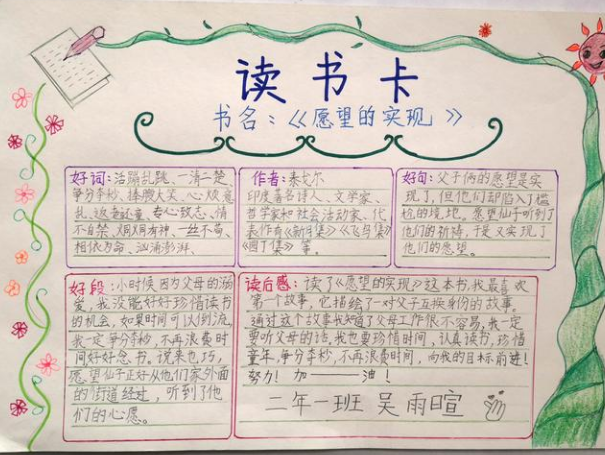 读书卡
书名:《愿望的实现》
好词:活蹦乱跳、一清二楚
争分夺秒、捧腹大笑、心烦意
乱、返老还童、专心致志、情
不自禁、炯炯有神、一丝不苟、
相依为命、汹涌澎湃、
作者:泰戈尔
印度著名诗人、文学家、
哲学家和社会活动家、代
表作有《新月集》《飞鸟集》
《园丁集》等。
好句:父子俩的愿望是实
现了,但他们却陷入了尴
尬的境地。愿望仙子听到了
他们的祈祷,于是又实现了
他们的愿望。
好段:小时候因为父母的溺
爱,我没能好好珍惜读书
的机会,如果时间可以倒流,
我一定争分夺秒,不再浪费时
间好好念书。说来也巧,
愿望仙子正好从他们家外面
的街道经过,听到了他
们的心愿。
读后感:读了《愿望的实现》这本书,我最喜欢
第一个故事,它描绘了一对父子互换身份的故事。
通过这个故事我知道了父母工作很不容易,我一定
要听父母的话,我也要珍惜时间,认真读书,珍惜
童年,争分夺秒,不再浪费时间,向我的目标前进!
努力!加——油!
二年一班 吴雨暄